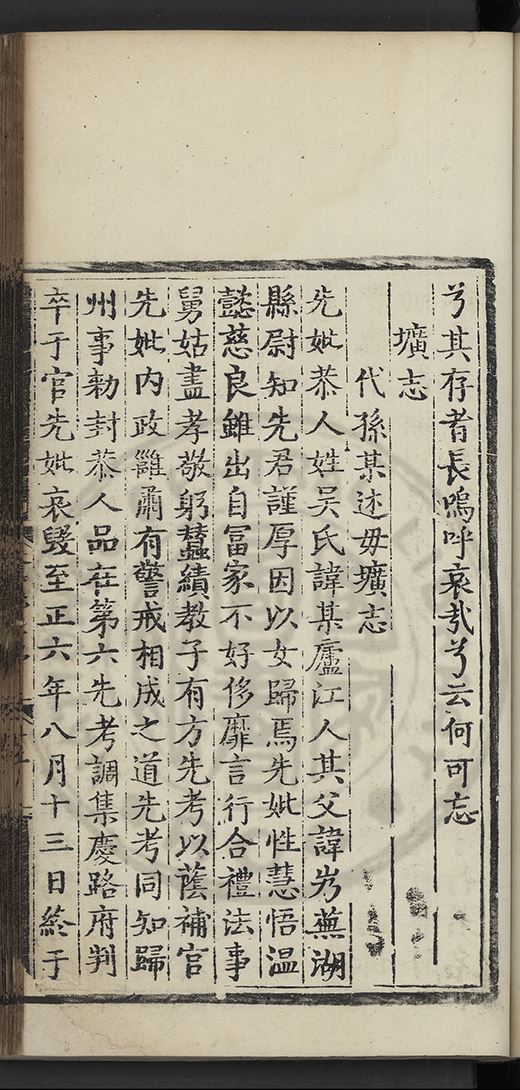 兮其存者長嗚呼哀哉兮云何可忘
壙志
代孫某述母壙志
先妣恭人姓吳氏諱某廬江人其父諱岁蕪湖
縣尉知先君謹厚因以女歸焉先妣性慧悟溫
懿慈良雖出自富家不好侈靡言行合禮法事
舅姑盡孝敬躬蠶績教子有方先考以蔭補官
先妣内政雝肅有警戒相成之道先考同知歸
州事勑封恭人品在第六先考調集慶路府判
卒于官先妣哀毀至正六年八月十三日終于